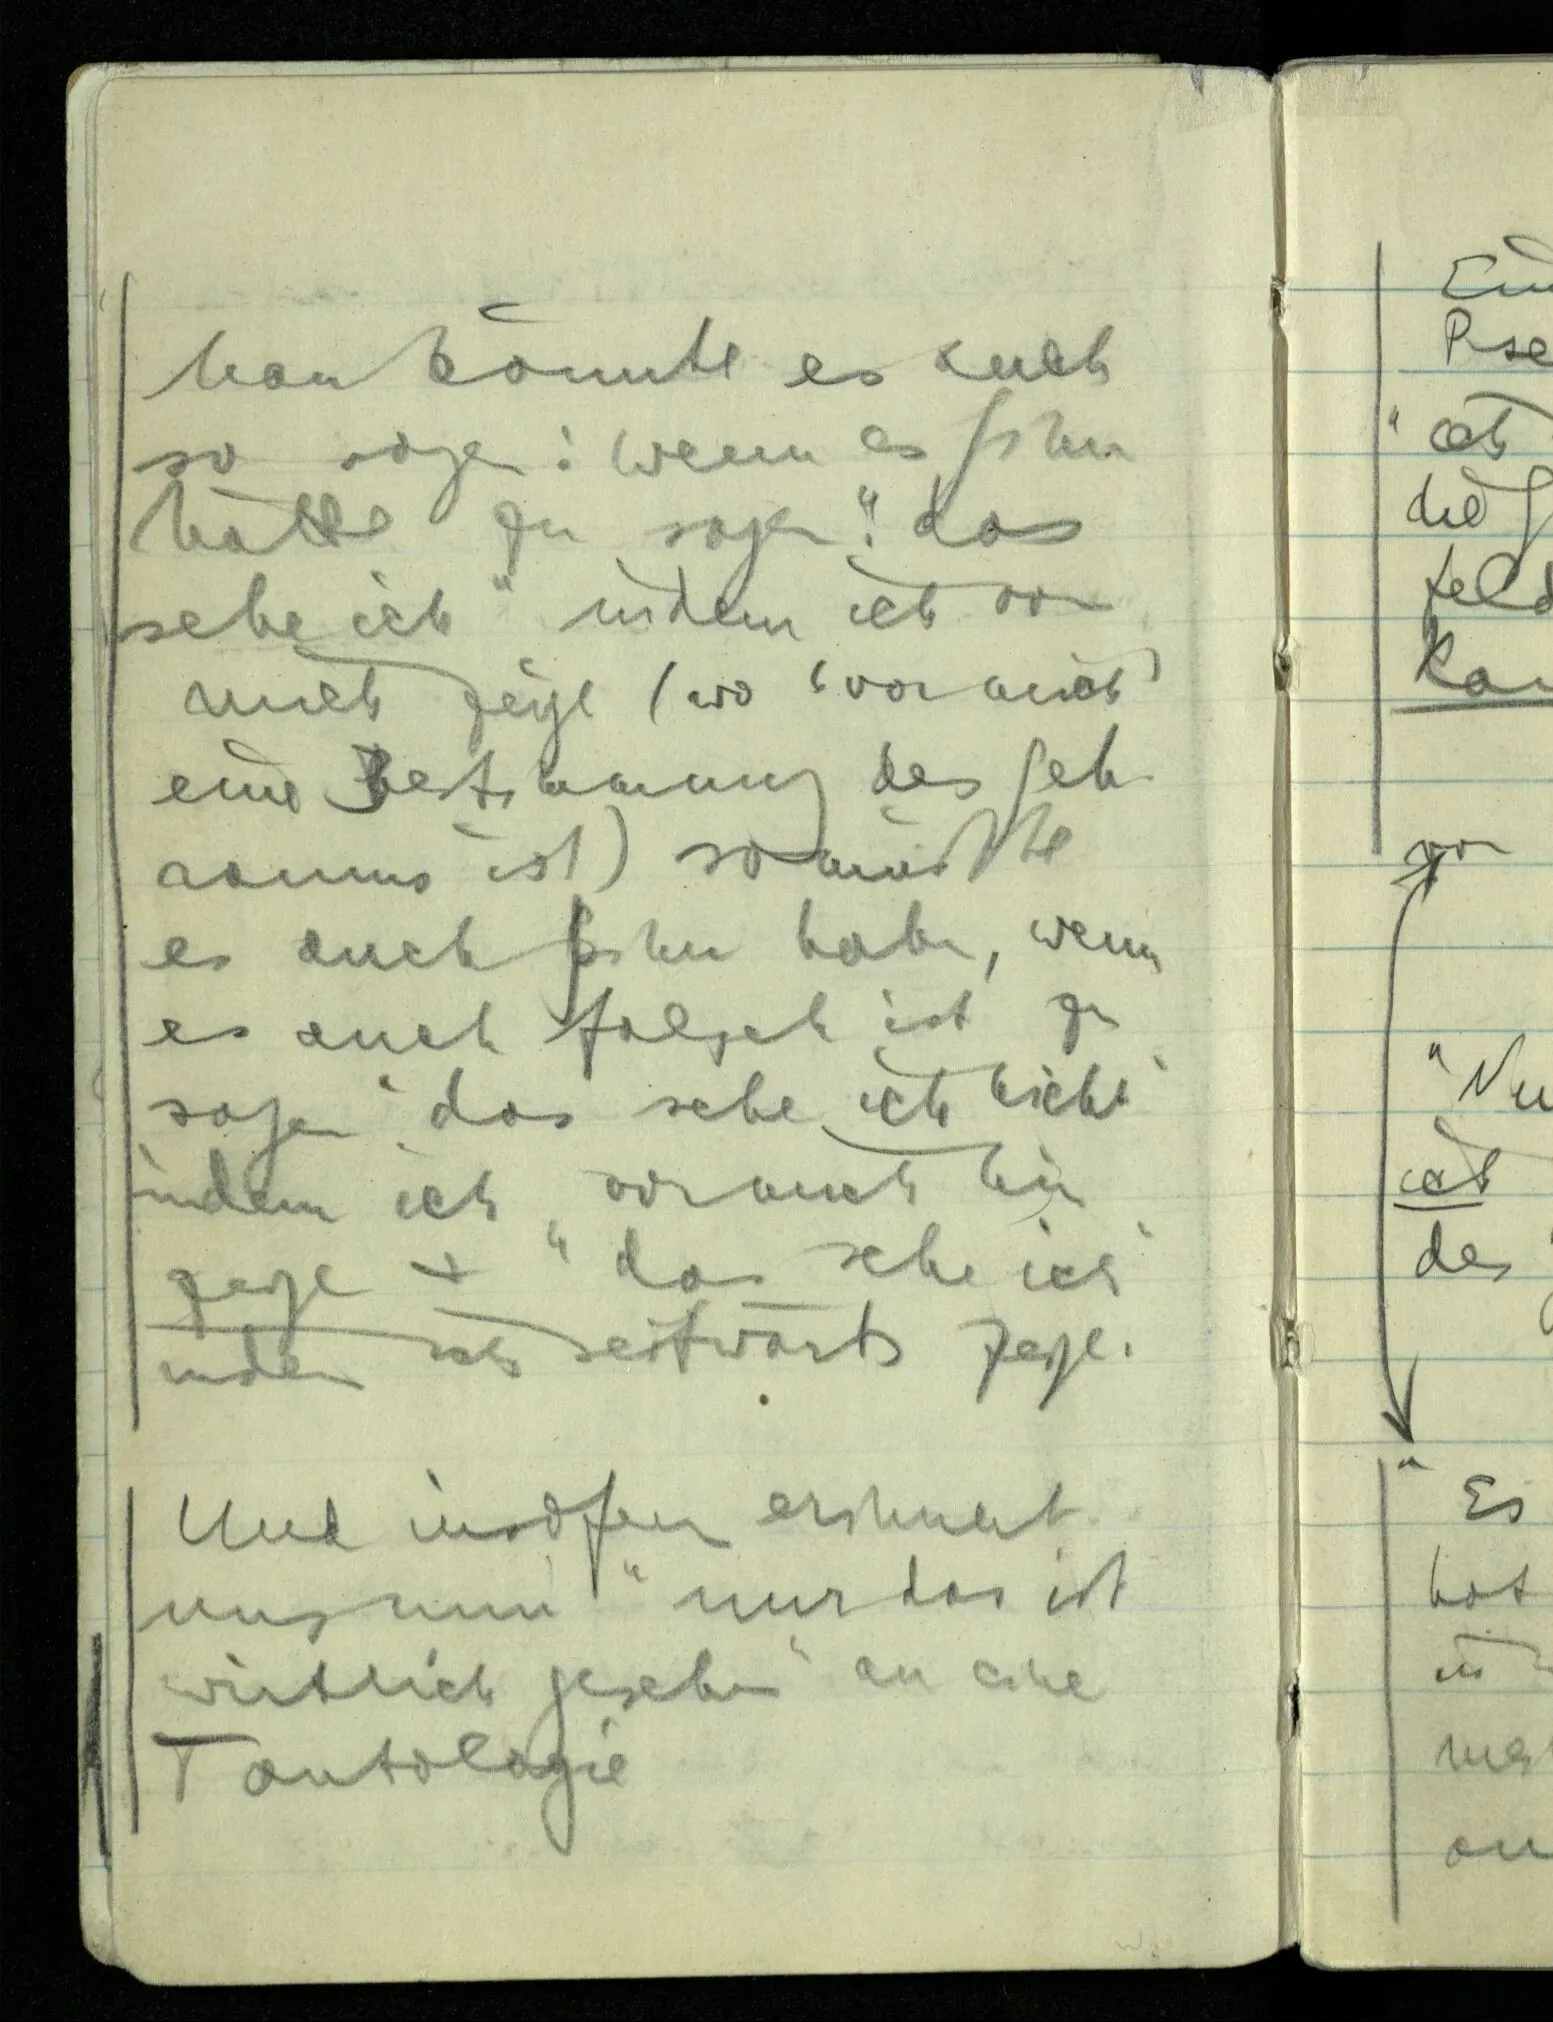 Man könnte es auch
so sagen: wenn es Sinn
hätte zu sagen: "das
sehe ich" indem ich vor
mich zeige (wo "vor mich"
eine Bestimmung des Seh-
raums ist) so müßte
es auch Sinn haben, wenn
es auch falsch ist zu
sagen "das sehe ich nicht"
indem ich vor mich hin
zeige & "das sehe ich"
indem ich seitwärts zeige.
Und insofern erinnert
uns nun "nur das ist
wirklich gesehen" an eine
Tautologie
die
vor
"Nu
ich
des
" Es
hat
in
an